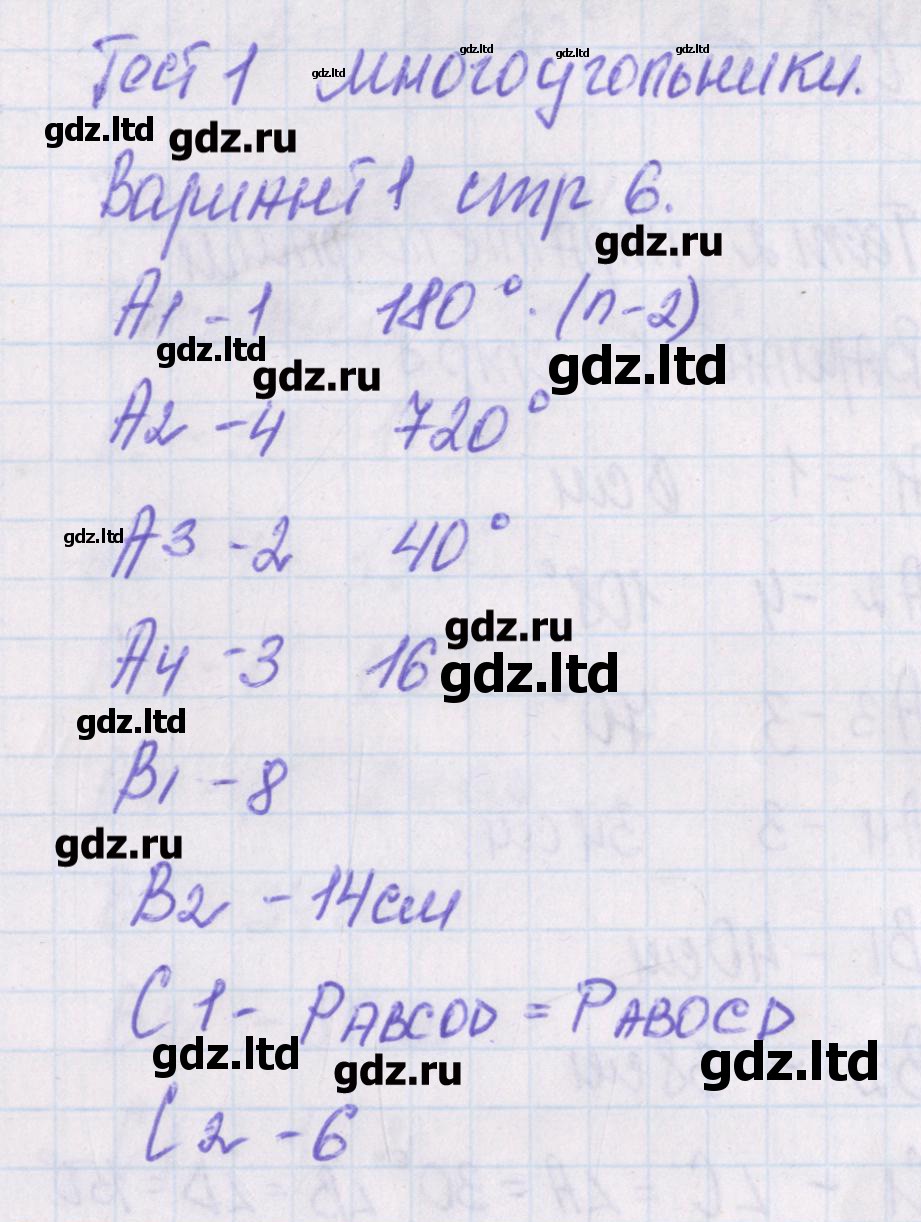 Тест 1 многоугольники.
Вариант 1 стр 6.
А1 - 1 180° · (n-2)
А2 - 4 720°
А3 - 2 40°
А4 - 3 16
В1 - 8
В2 - 14 см
С1 - PABCOD = PABOCD
С2 - 6
gdz.ltd
gdz.ltd
gdz.ltd
gdz.ltd
gdz.ltd
gdz.ru
gdz.ru
gdz.ltd
gdz.ru
gdz.ltd
gdz.ltd
gdz.ru
gdz.ltd
gdz.ltd
gdz.ru
gdz.ltd
gdz.ru
gdz.ltd